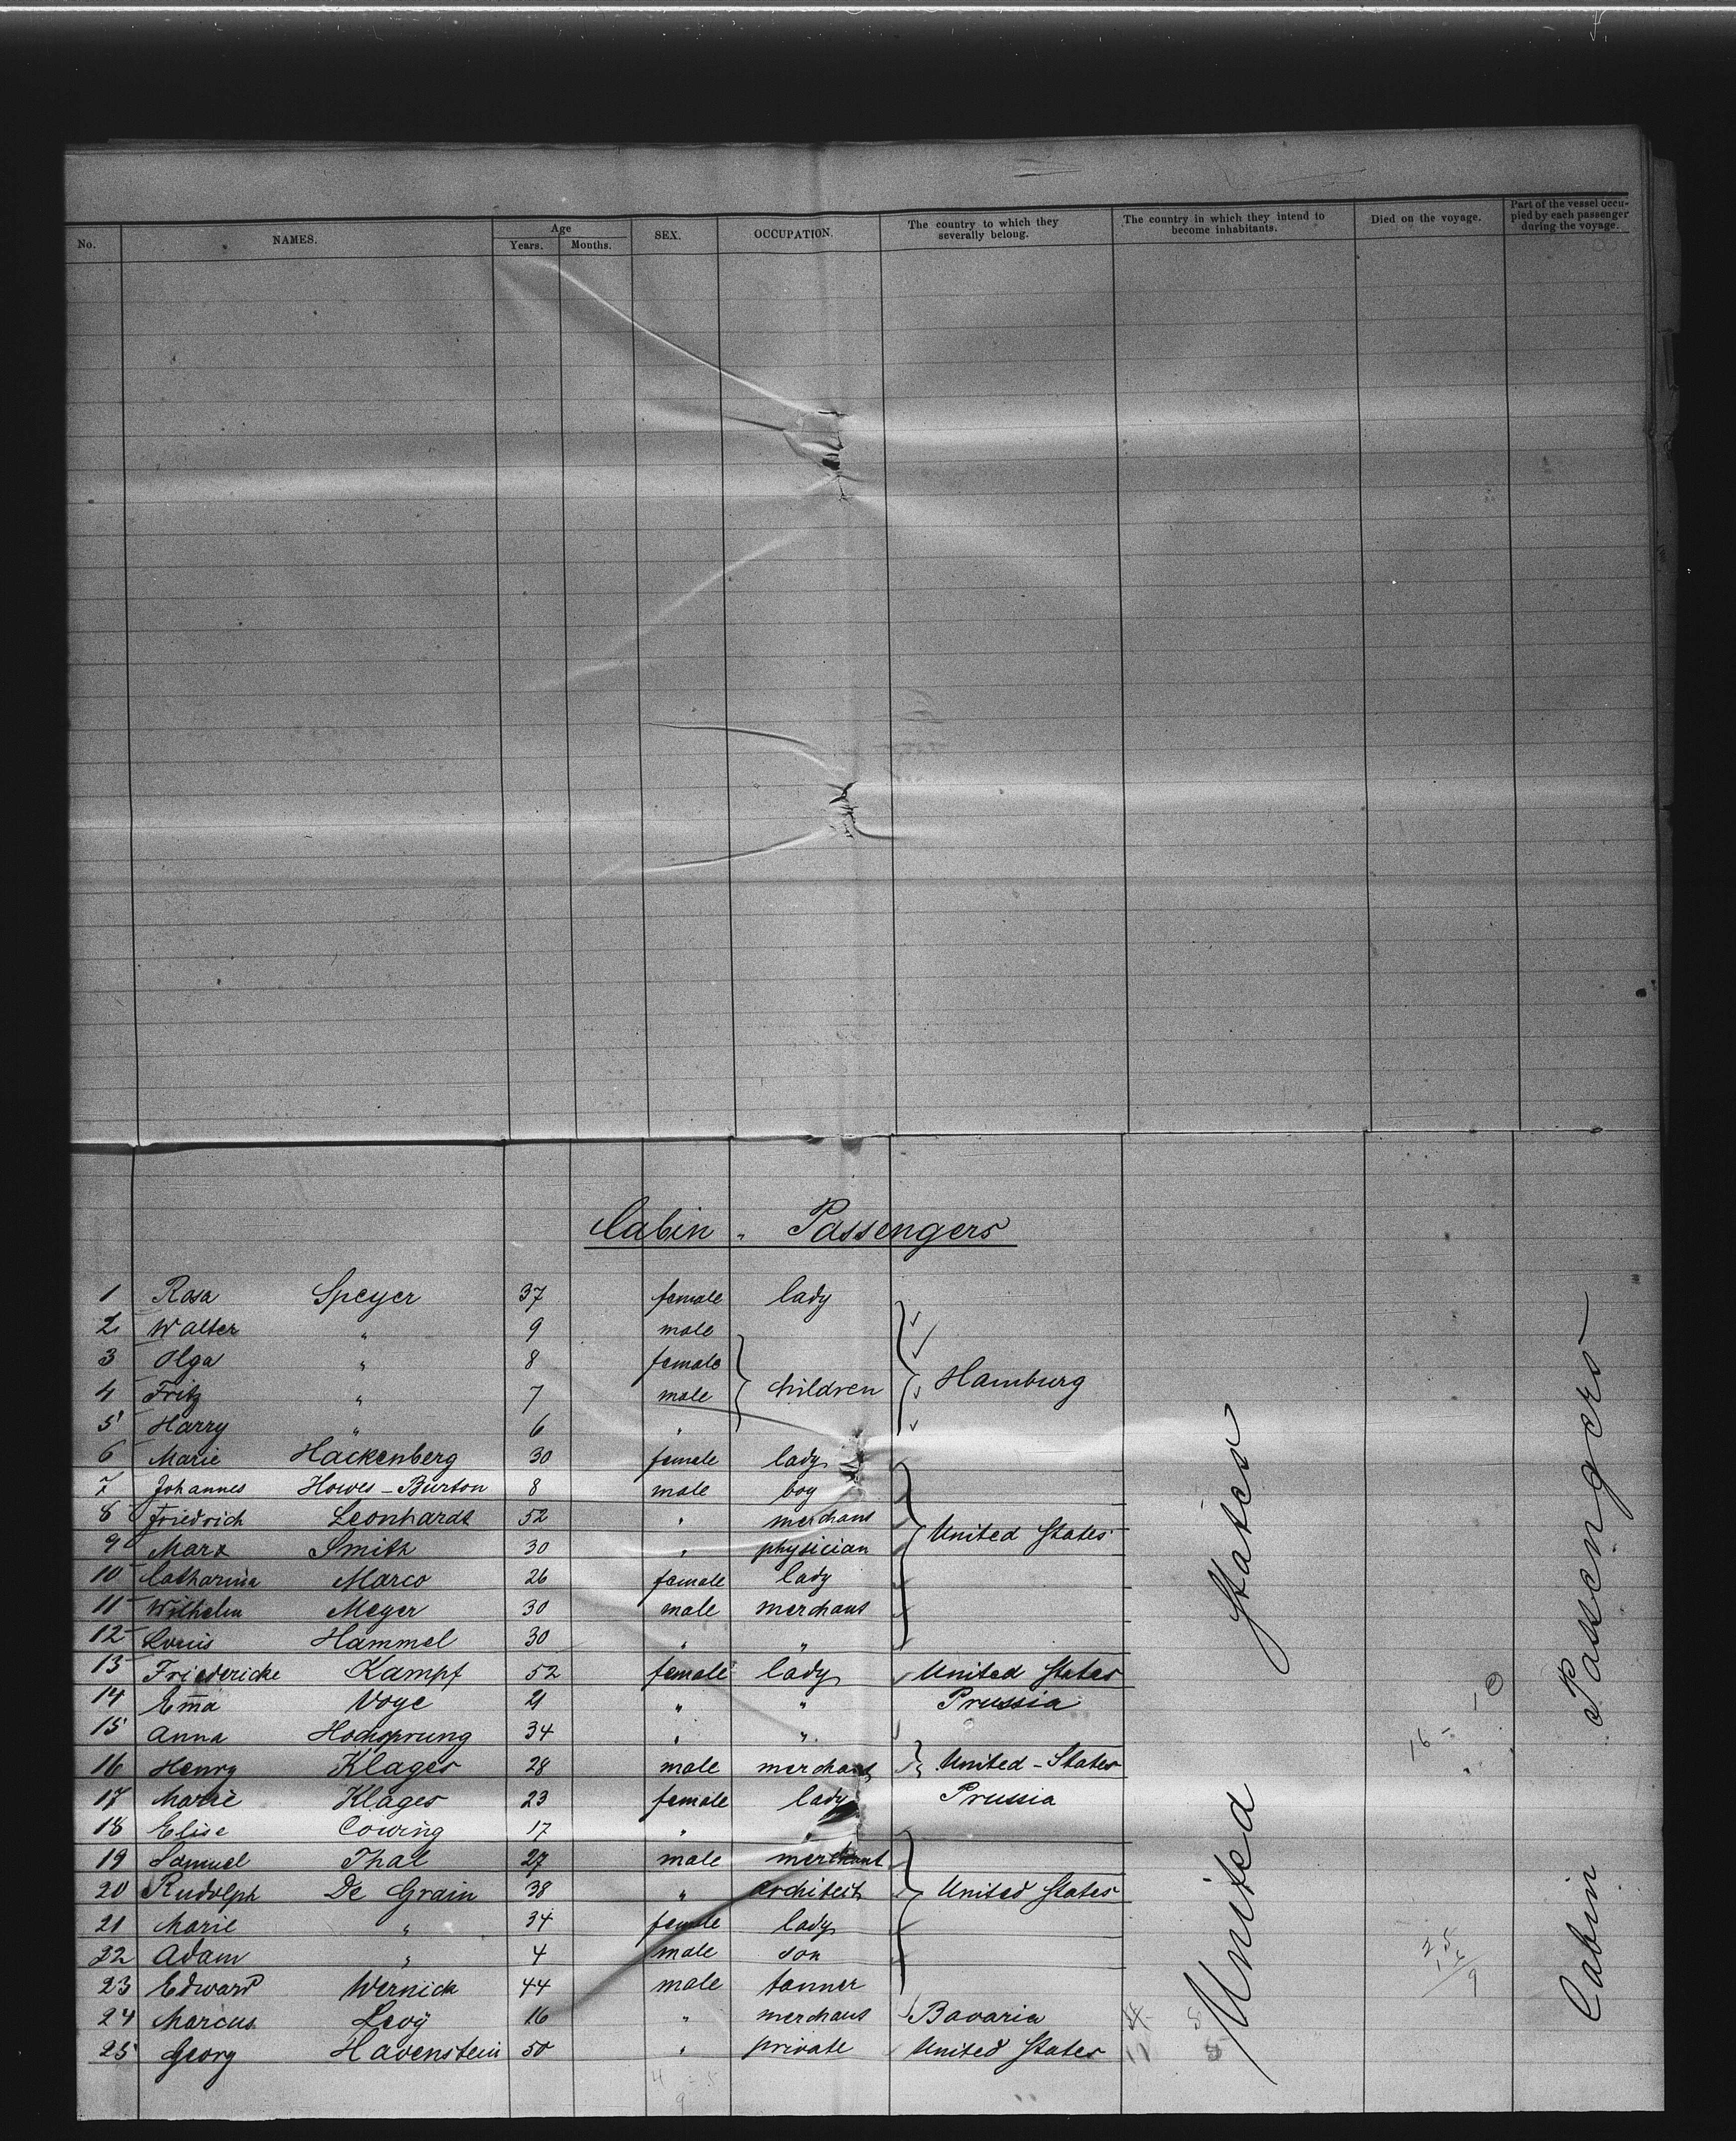 No. NAMES. Age Years. Months. SEX. OCCUPATION. The country to which they severally belong. The country in which they intend to become inhabitants. Died on the voyage. Part of the vessel occupied by each passenger during the voyage.
Cabin - Passengers
1 Rosa Speyer 37 female lady
2 Walter " 9 male
3 Olga " 8 female
4 Fritz " 7 male children Hamburg
5 Harry " 6 "
6 Marie Hackenberg 30 female lady
7 Johannes Howes-Burton 8 male boy
8 Friedrich Leonhardt 52 " merchant
9 Marx Smith 30 " physician United States
10 Catharina Marco 26 female lady
11 Wilhelm Meyer 30 male merchant
12 Louis Hammel 30 " "
13 Friedericke Kampf 52 female lady United States
14 Em̄a Voge 21 " " Prussia
15 Anna Hochsprung 34 " "
16 Henry Klages 28 male merchant United-States
17 Marie Klages 23 female lady Prussia
18 Elise Cowing 17 "
19 Samuel Thal 27 male merchant
20 Rudolph De Grain 38 " architect United States
21 Marie " 34 female lady
22 Adam " 4 male son
23 Edward Wernick 44 male tanner
24 Marcus Levÿ 16 " merchant Bavaria
25 Georg Havenstein 50 " private United States
United States
Cabin Passengers